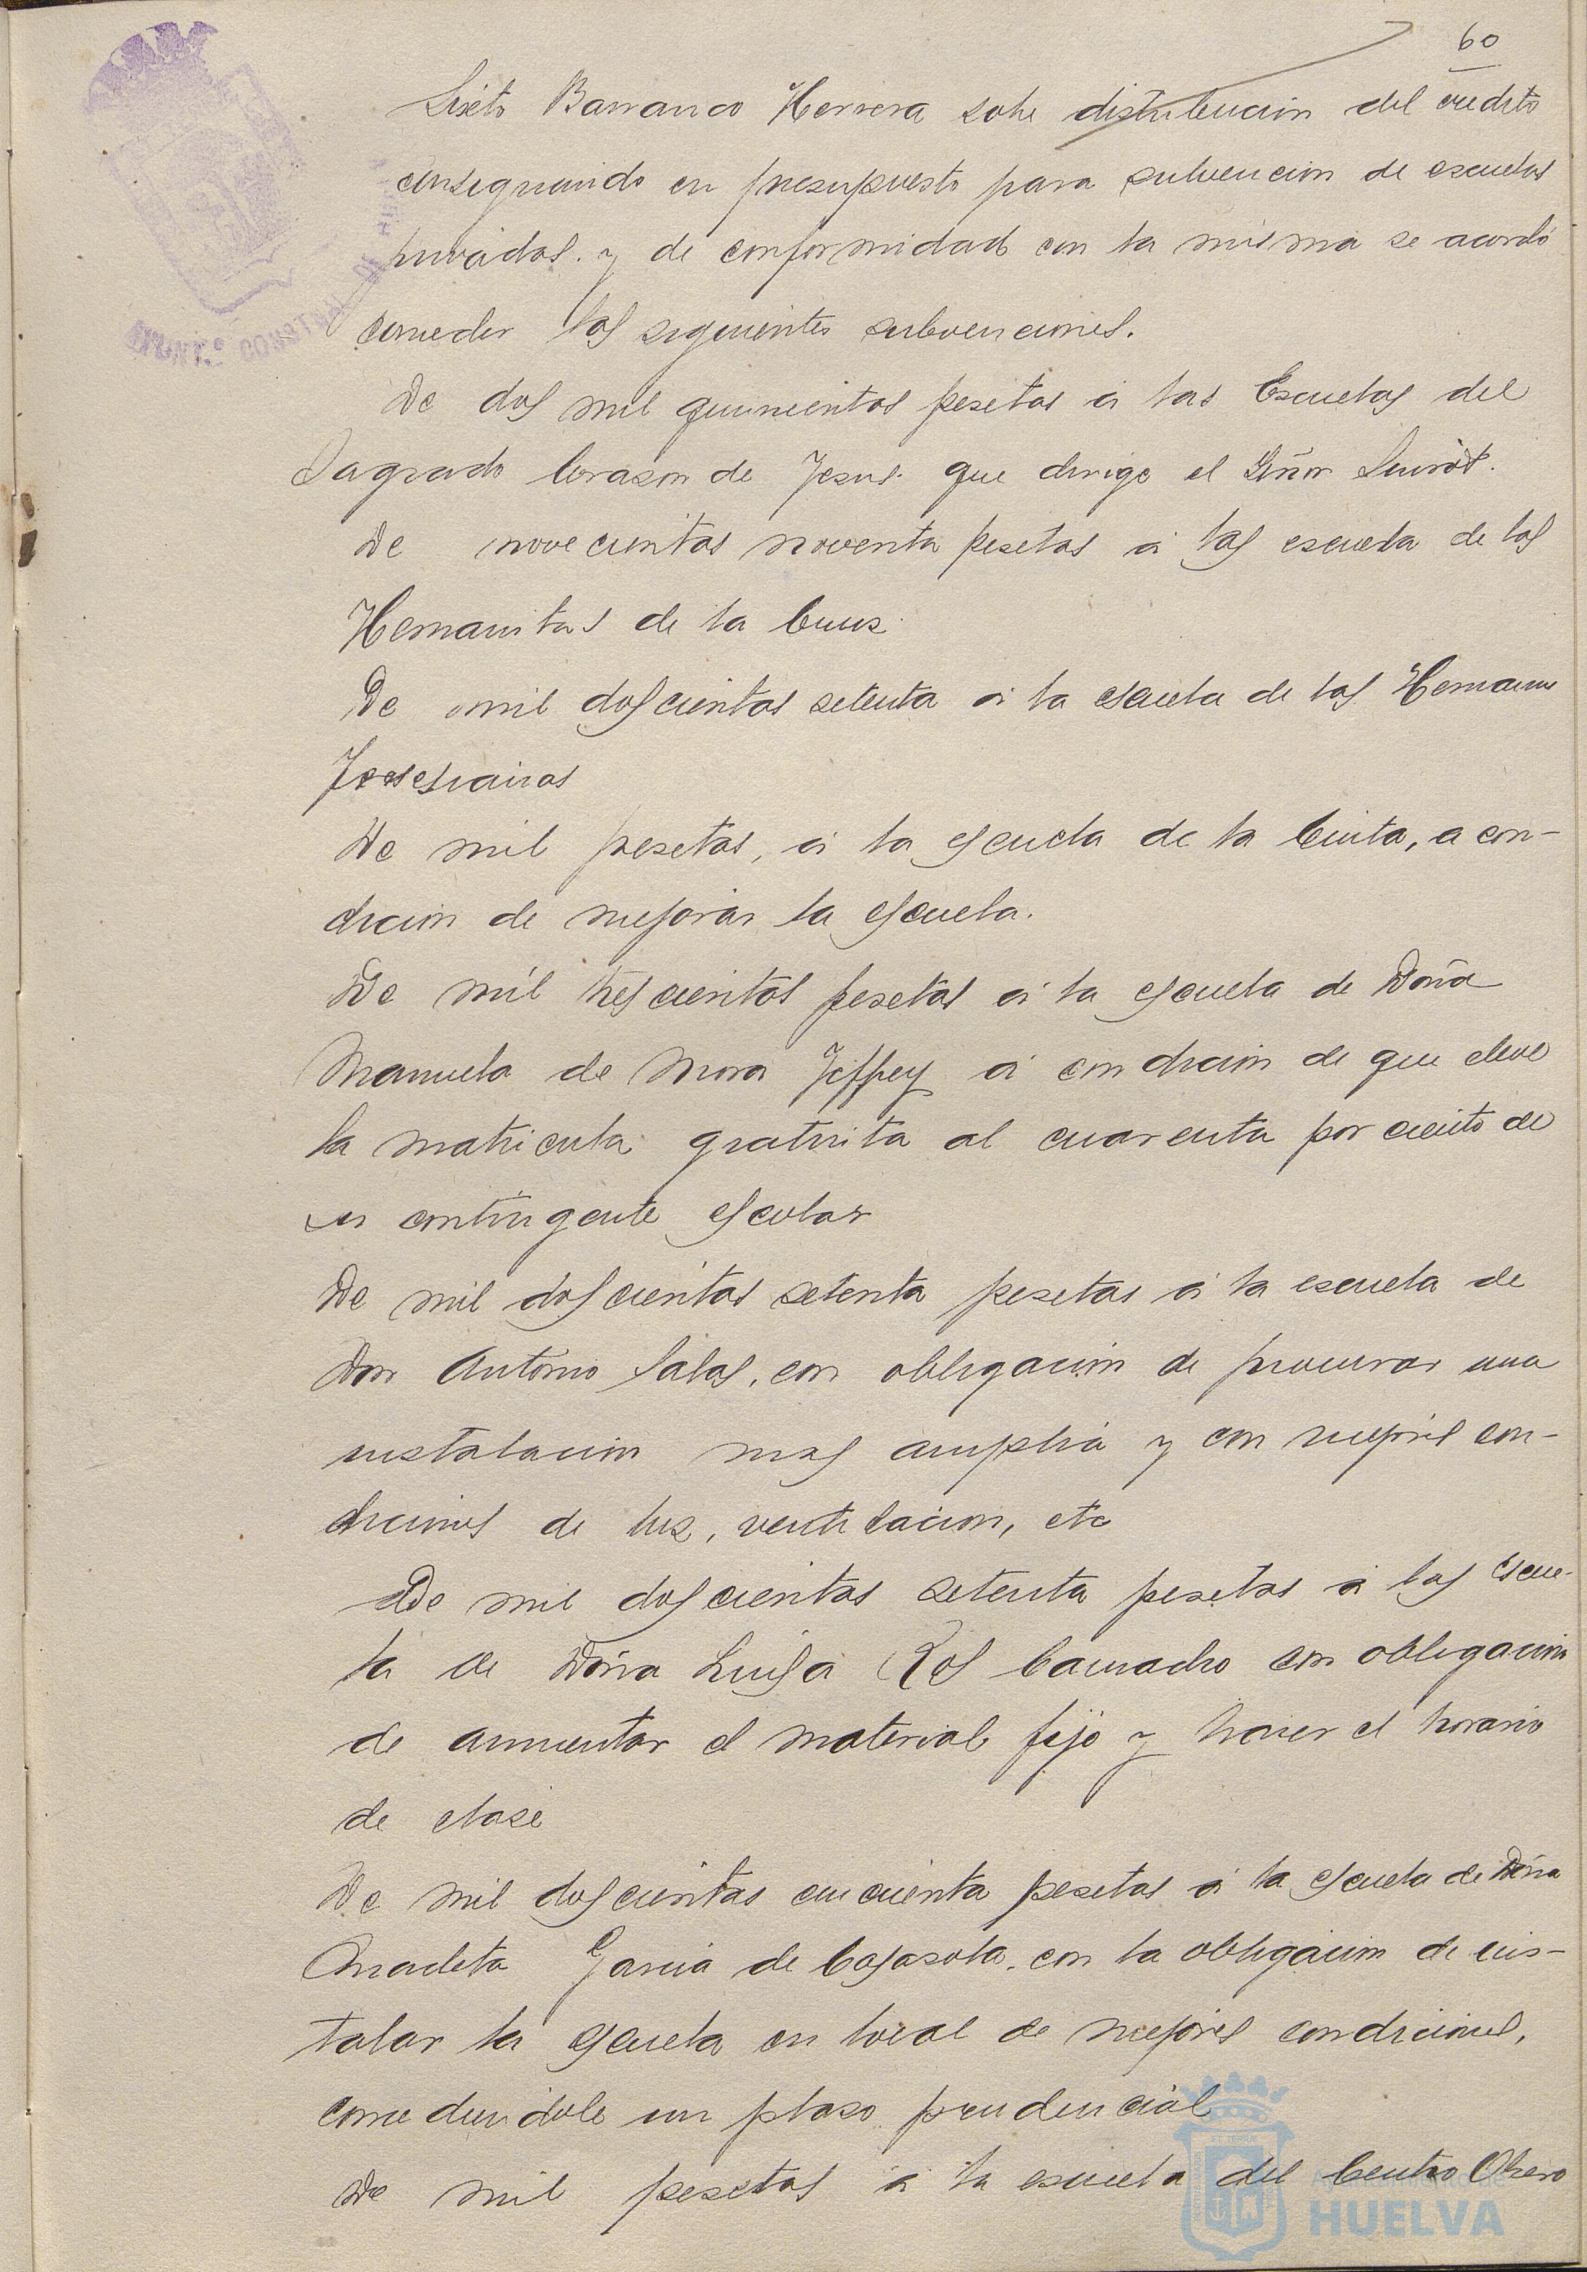 60
Sixto Barranco Herrera sobre distribucion del credito
consignando en presupuesto para subvencion de escuelas
privadas. y de conformidad con la misma se acordó
conceder las siguientes subvenciones.
De dos mil quinientas pesetas á las Escuelas del
Sagrado Corazon de Jesus. que dirige el Señor Siurot.
De novecientas noventa pesetas á las escuela de las
Hermanitas de la Cruz.
De mil doscientas setenta á la escuela de las Hermanas
De mil pesetas, á la escuela de la Cinta, a con-
dicion de mejorar la escuela.
De mil trescientas pesetas á la escuela de Doña
Manuela de Mora Jeffrey á condicion de que eleve
la matricula gratuita al cuarenta por ciento de
su contingente escolar
De mil doscientas setenta pesetas á la escuela de
Don Antonio Salas, con obligacion de procurar una
instalacion mas amplia y con mejores con-
diciones de luz, ventilacion, etc
De mil doscientas setenta pesetas á las escue-
la de Doña Luisa Ros Camacho con obligacion
de aumentar el material fijo y hacer el horario
de clase
De mil doscientas cincuenta pesetas á la escuela de Doña
Garcia de Cajasola, con la obligacion de ins-
talar la escuela en local de mejores condiciones,
concediendole un plazo prudencial
De mil pesetas á la escuela del Centro Obrero
Ayuntamiento de
HUELVA